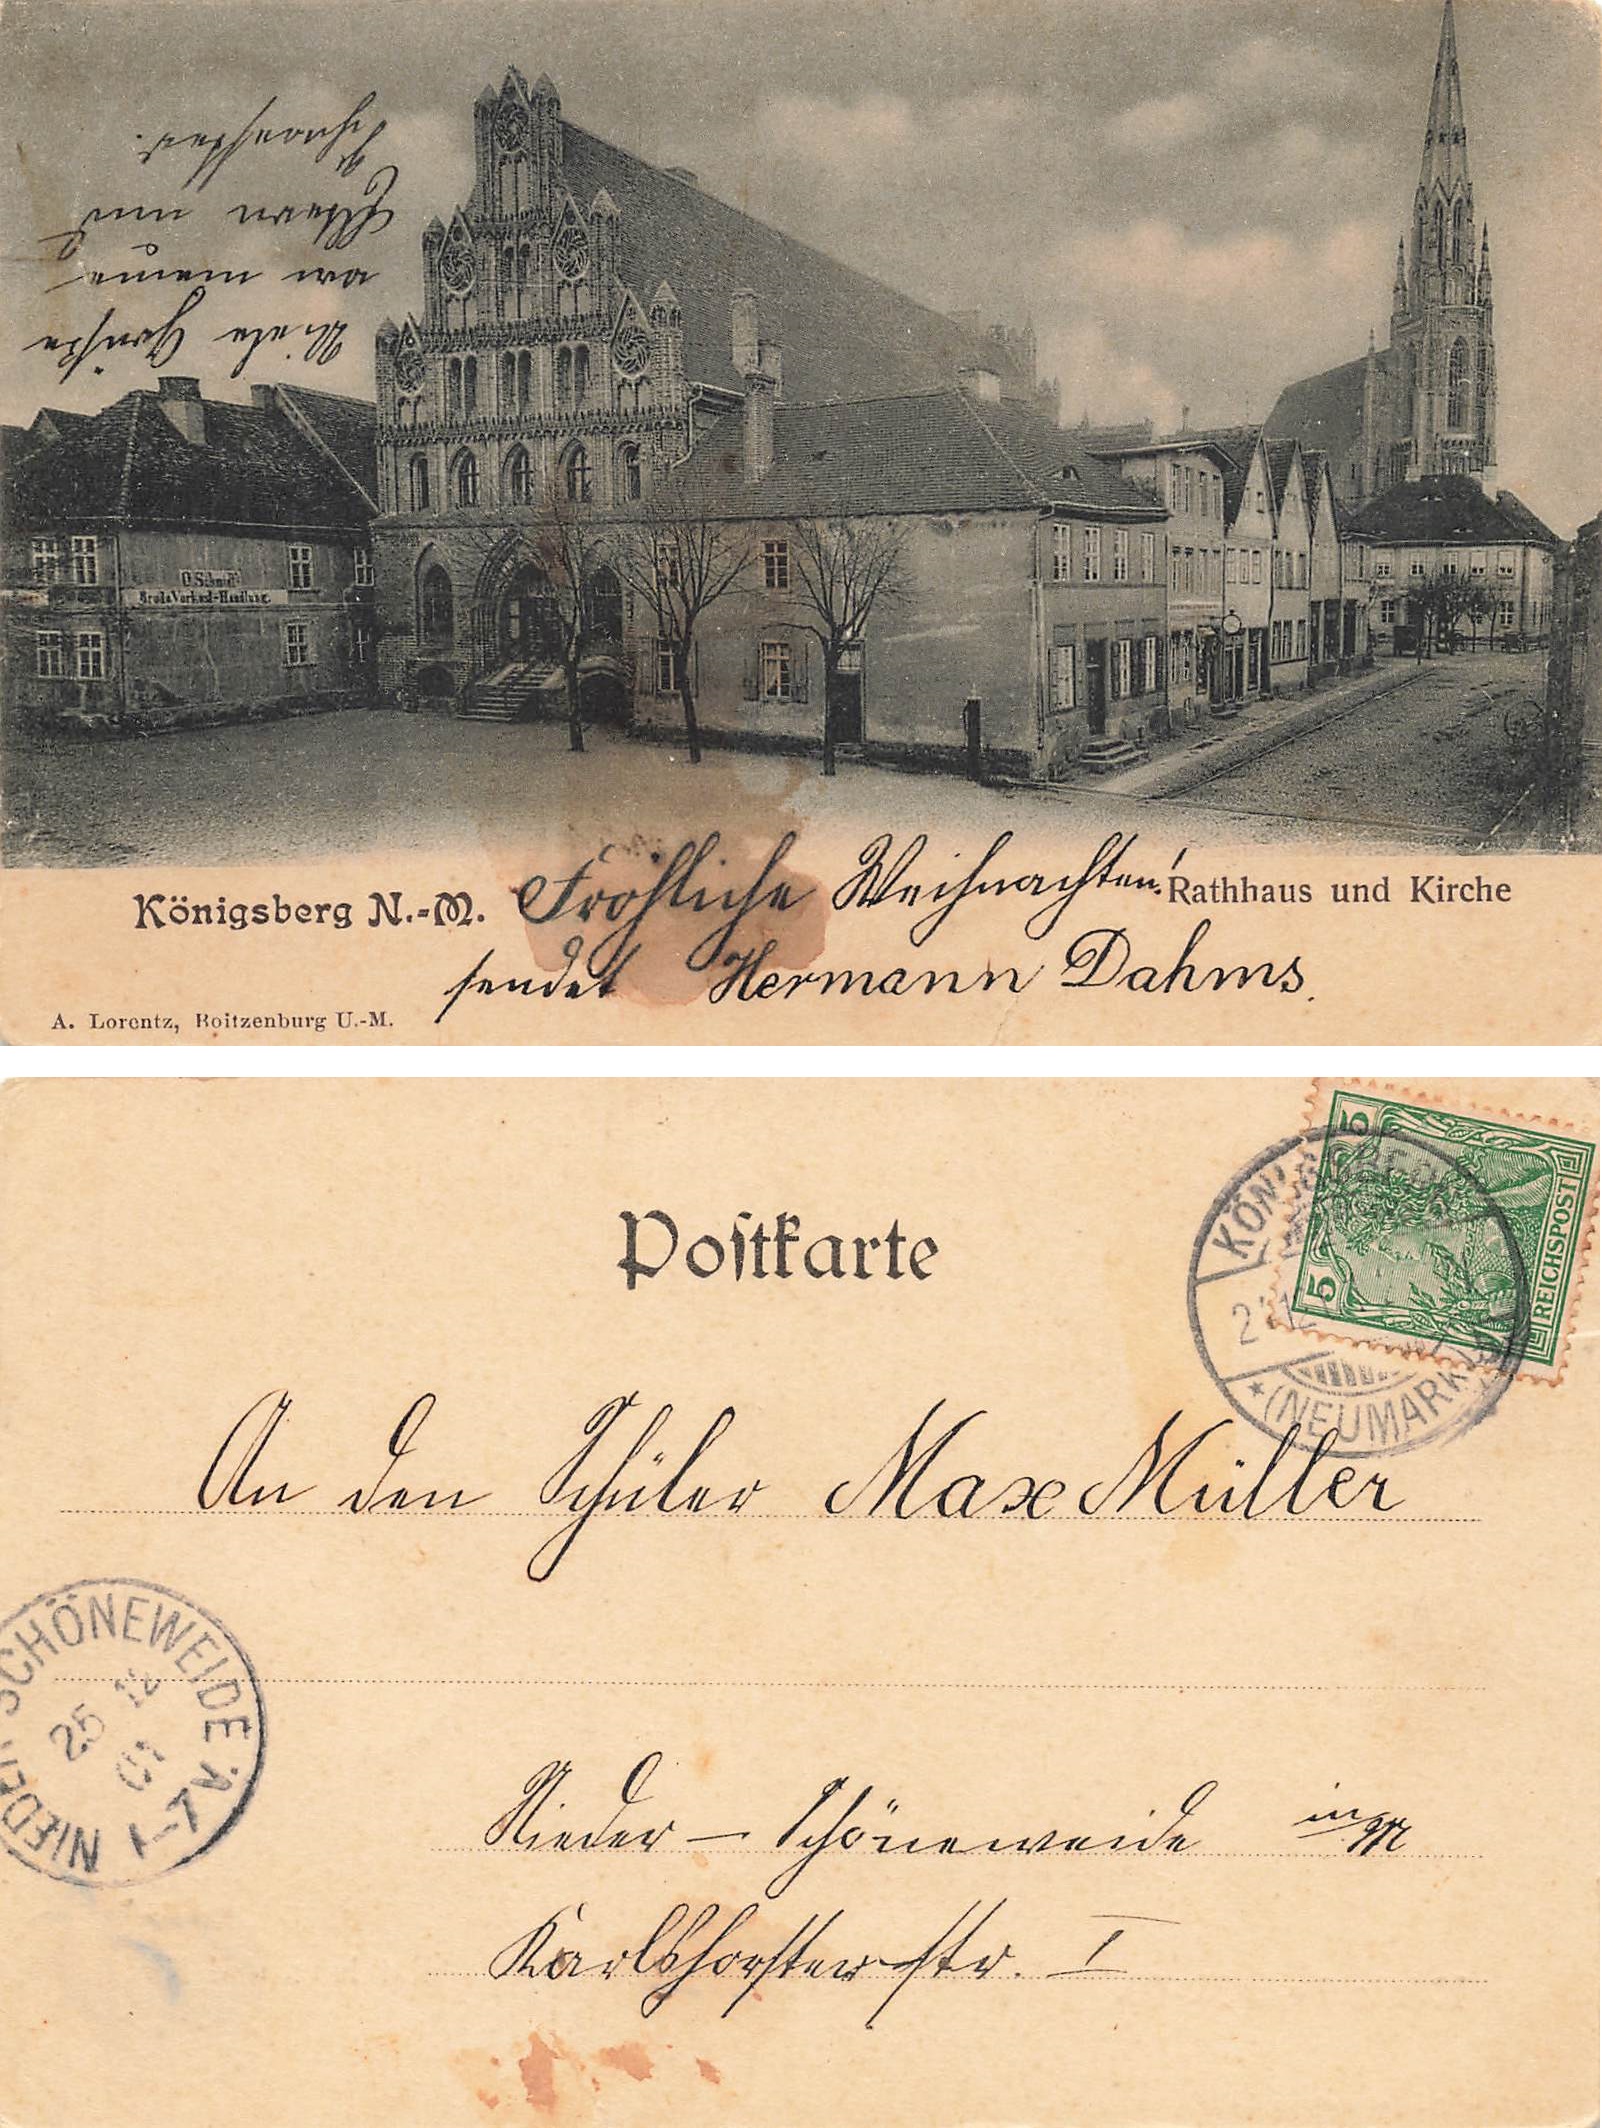 Viele Grüße
von meine
Eltern und
Schwester.
O. Schmidt
Brods Verkauf-Handlung.
Königsberg N.-M. Fröhliche Weihnachten! Rathhaus und Kirche
sendet Hermann Dahms.
A. Lorentz, Boitzenburg U.-M.
Postkarte
5
5
REICHSPOST
KÖNIGSBERG
12
* (NEUMARK)
An den Schüler Max Müller
NIEDER SCHÖNEWEIDE
25 12
01
1-7 V.
Nieder-Schöneweide
Karlshorster str. I